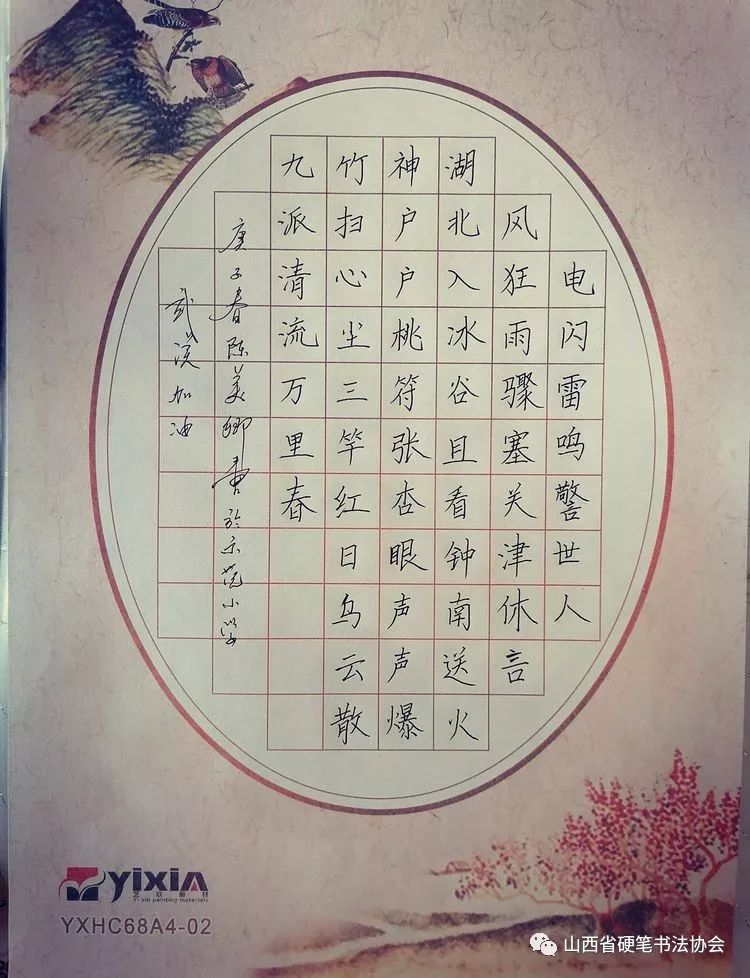 电闪雷鸣警世人
风狂雨骤塞关津休言
湖北入冰谷且看钟南送火
神户户桃符张杏眼声声爆
竹扫心尘三竿红日鸟云散
九派清流万里春
庚子春陈美卿书於示范小学
武汉加油
YIXIN
Yi xin painting materials
YXHC68A4-02
山西省硬笔书法协会